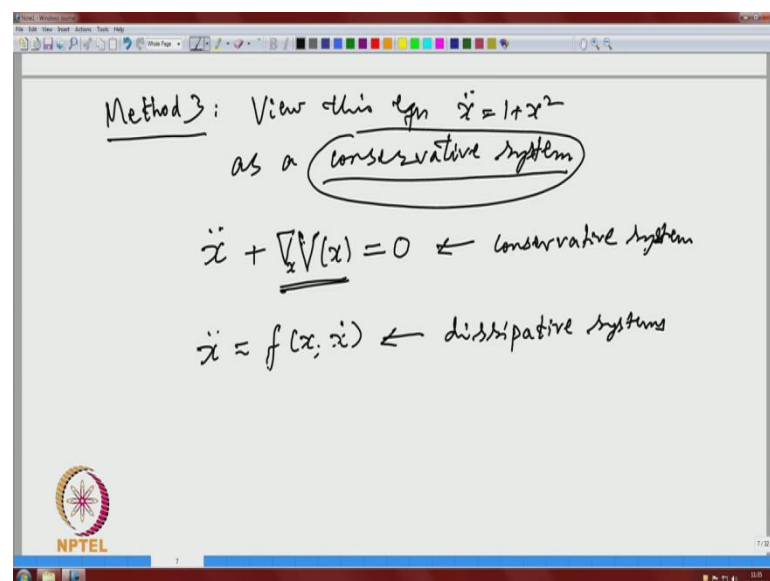 Note1 - Windows Journal
File Edit View Insert Actions Tools Help
Method 3: View this eqn ẍ = 1+x²
as a conservative system
ẍ + ∇ₓV(x) = 0 ← conservative system
ẍ = f(x, ẋ) ← dissipative systems
NPTEL
7
7/12
11:35